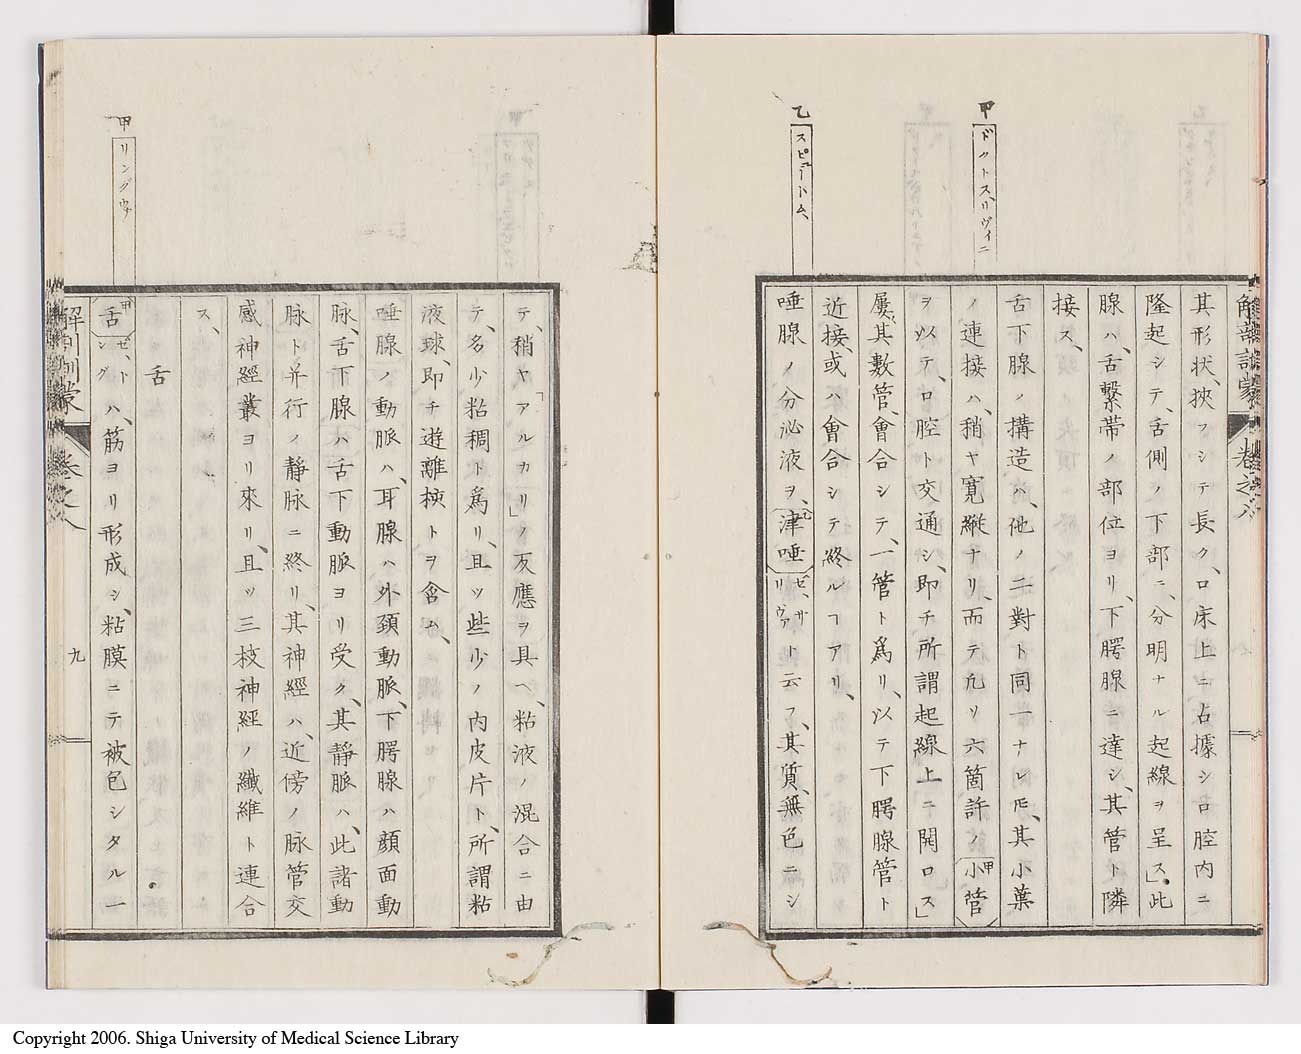 甲 ドクトス、リヴィニ
乙 スピュートム、
其形狀、挾フシテ長ク、口床上ニ占據シ口腔内ニ
隆起シテ、舌側ノ下部ニ、分明ナル起線ヲ呈ス」此
腺ハ、舌繋帯ノ部位ヨリ、下腭腺ニ達シ、其管ト隣
接ス、
舌下腺ノ搆造ハ、他ノ二對ト同一ナレ𪜈、其小葉
ノ連接ハ、稍ヤ寛縱ナリ、而テ九ソ六箇許ノ甲小管
ヲ以テ、口腔ト交通シ、即チ所謂起線上ニ開口ス」
屢、其數管、會合シテ、一管ト爲リ、以テ下腭腺管ト
近接、或ハ會合シテ終ルヿアリ、
唾腺ノ分泌液ヲ、乙津唾セ、サリヴァト云フ、其質、無色ニシ
解剖訓蒙 卷之八
甲 リングヷ
テ、稍ヤ「アルカリ」ノ反應ヲ具ヘ、粘液ノ混合ニ由
テ、多少粘稠ト爲リ、且ツ些少ノ内皮片ト、所謂粘
液球、即チ遊離核トヲ含ム、
唾腺ノ動脈ハ、耳腺ハ外頚動脈、下腭腺ハ顔面動
脉、舌下腺ハ舌下動脈ヨリ受ク、其靜脈ハ、此諸動
脉ト并行ノ靜脉ニ終リ、其神經ハ、近傍ノ脉管交
感神經叢ヨリ來リ、且ツ三枝神經ノ纎維ト連合
ス、
舌
甲舌ゼ、トングハ、筋ヨリ形成シ、粘膜ニテ被包シタル一
解剖訓蒙 卷之八 九
Copyright 2006. Shiga University of Medical Science Library